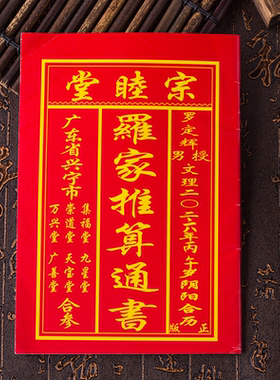 宗睦堂
罗定辉授
男文理二〇二六年丙午岁阴阳合历
正版
羅家推算通書
广东省兴宁市
集福堂 九星堂
崇道堂 天宝堂
万兴堂 广善堂
合参